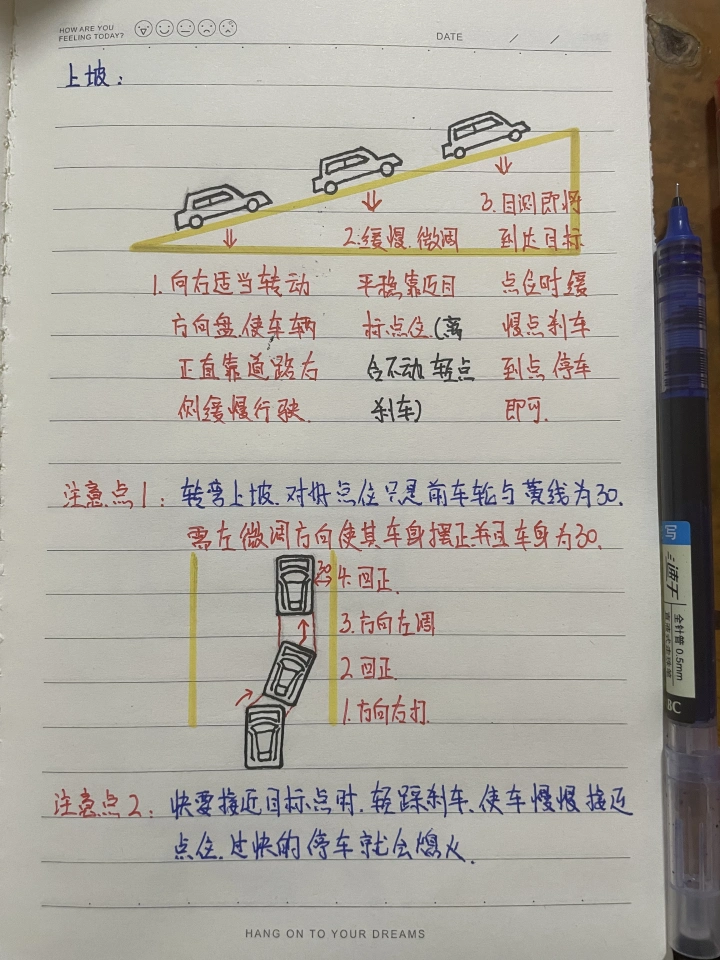 HOW ARE YOU
FEELING TODAY?
DATE / /
上坡：
1. 向右适当转动
方向盘.使车辆
正直靠道路右
侧缓慢行驶.
2.缓慢.微调
平稳靠近目
标点位.(离
合不动 轻点
刹车)
3.目测即将
到达目标
点位时缓
慢点刹车
到点停车
即可.
注意点1：转弯上坡.对好点位只是前车轮与黄线为30.
需左微调方向使其车身摆正并且车身为30.
30
4.回正.
3.方向左调
2.回正.
1.方向右打.
注意点2：快要接近目标点时.轻踩刹车、使车慢慢接近
点位.过快的停车就会熄火.
HANG ON TO YOUR DREAMS
写
速干
全针管 0.5mm